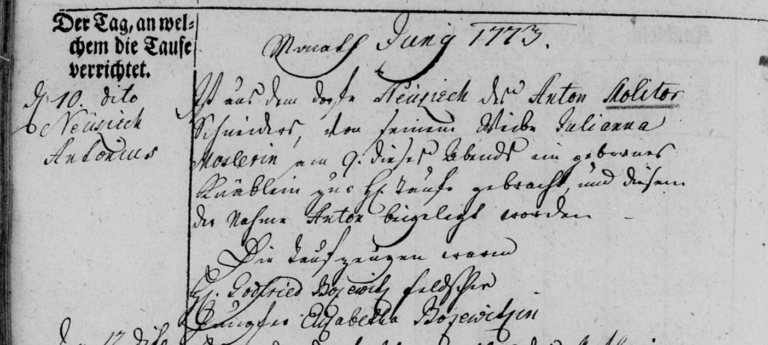 Der Tag, an wel-
chem die Taufe
verrichtet.
Monath Junÿ 1773.
10. dito
Neusiech
Antonius
Ist aus dem dorfe Neusiech des Anton Molitor
Schneiders, von seinem Weibe Julianna
Moslerin am 9. dieses Abends ein gebornes
Knäblein zur Hl. Taufe gebracht, und diesem
der Nahme Anton beigelegt worden
Die Taufzeugen waren
H. Godfried Bosewitz feldscher
Jungfer Elisabetha Bosewitzin
12 dito